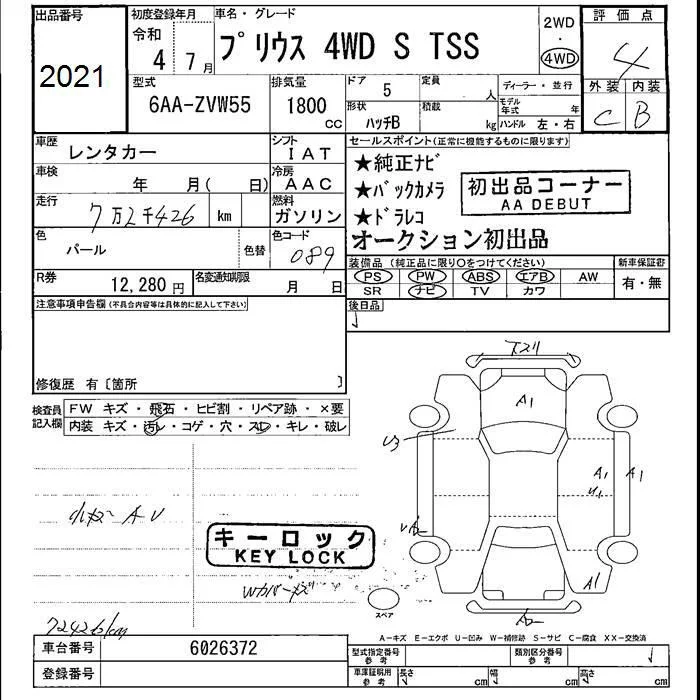 出品番号
2021
初度登録年月
令和
4 7月
車名・グレード
プリウス 4WD S TSS
2WD
・
4WD
評価点
4
外装 内装
C B
型式
6AA-ZVW55
排気量
1800
CC
ドア
5
定員
人
形状
ハッチB
積載
kg
ディーラー・並行
モデル年式
年
ハンドル 左・右
車歴
レンタカー
シフト
IAT
車検
年 月( 日)
冷房
AAC
走行
7万2千426
km
燃料
ガソリン
色
パール
色替
色コード
089
R券
12,280 円
名変通知期限
月 日
セールスポイント(正常に機能するものに限ります)
★純正ナビ
★バックカメラ
★ドラレコ
オークション初出品
初出品コーナー
AA DEBUT
装備品(純正品に限り○をつけてください)
PS PW ABS エアB AW
SR ナビ TV カワ
新車保証書
有・無
後日品
注意事項申告欄(不具合内容等は具体的に記入して下さい)
修復歴 有〔箇所 〕
検査員記入欄
FW キズ・飛石・ヒビ割・リペア跡・×要
内装 キズ・汚レ・コゲ・穴・スレ・キレ・破レ
A1
U3
A1
A1
A1
キーロック
KEY LOCK
スペア
72426km
A−キズ E−エクボ U−凹み W−補修跡 S−サビ C−腐食 XX−交換済
車台番号
6026372
登録番号
型式指定番号
参考
類別区分番号
参考
車庫証明用
参考
長さ
cm
幅
cm
高さ
cm